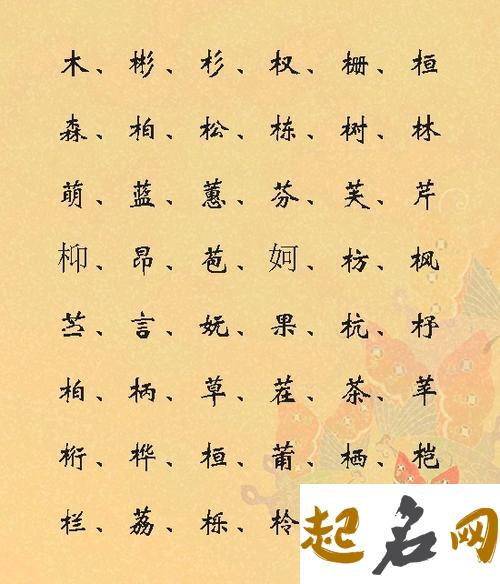 木、彬、杉、杈、栅、桓
森、柏、松、栋、树、林
萌、蓝、蕙、芬、芙、芹
枊、昂、苞、妸、枋、枫
苎、言、妩、果、杭、杼
柏、柄、草、茬、茶、苹
桁、桦、桓、莆、栖、桤
栏、荔、栎、柃
起名网